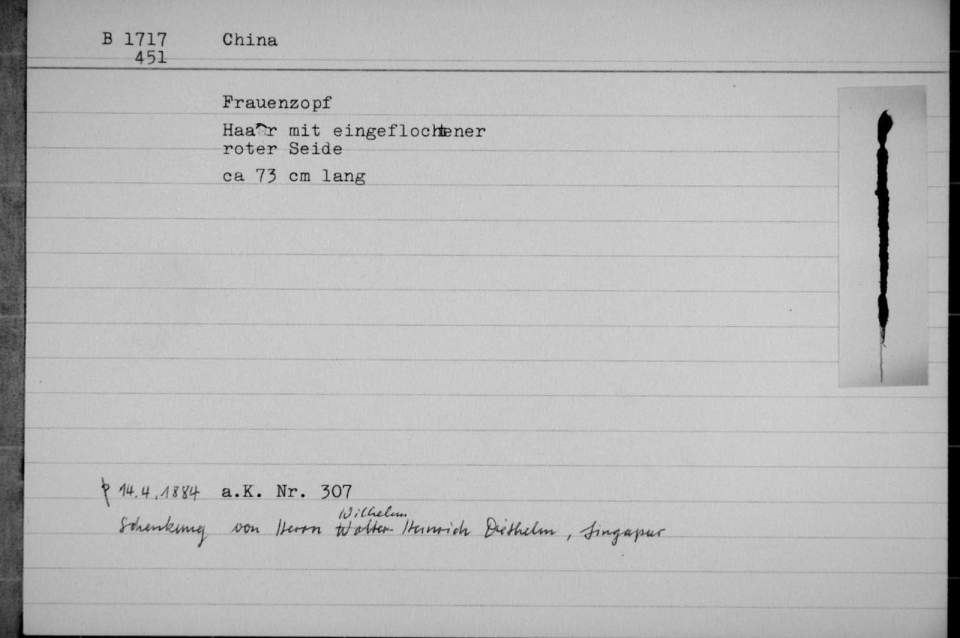 B 1717 China
451
Frauenzopf
Haar mit eingeflochtener
roter Seide
ca 73 cm lang
14.4.1884 a.K. Nr. 307
Wilhelm
Schenkung von Herrn Walter Heinrich Diethelm, Singapur